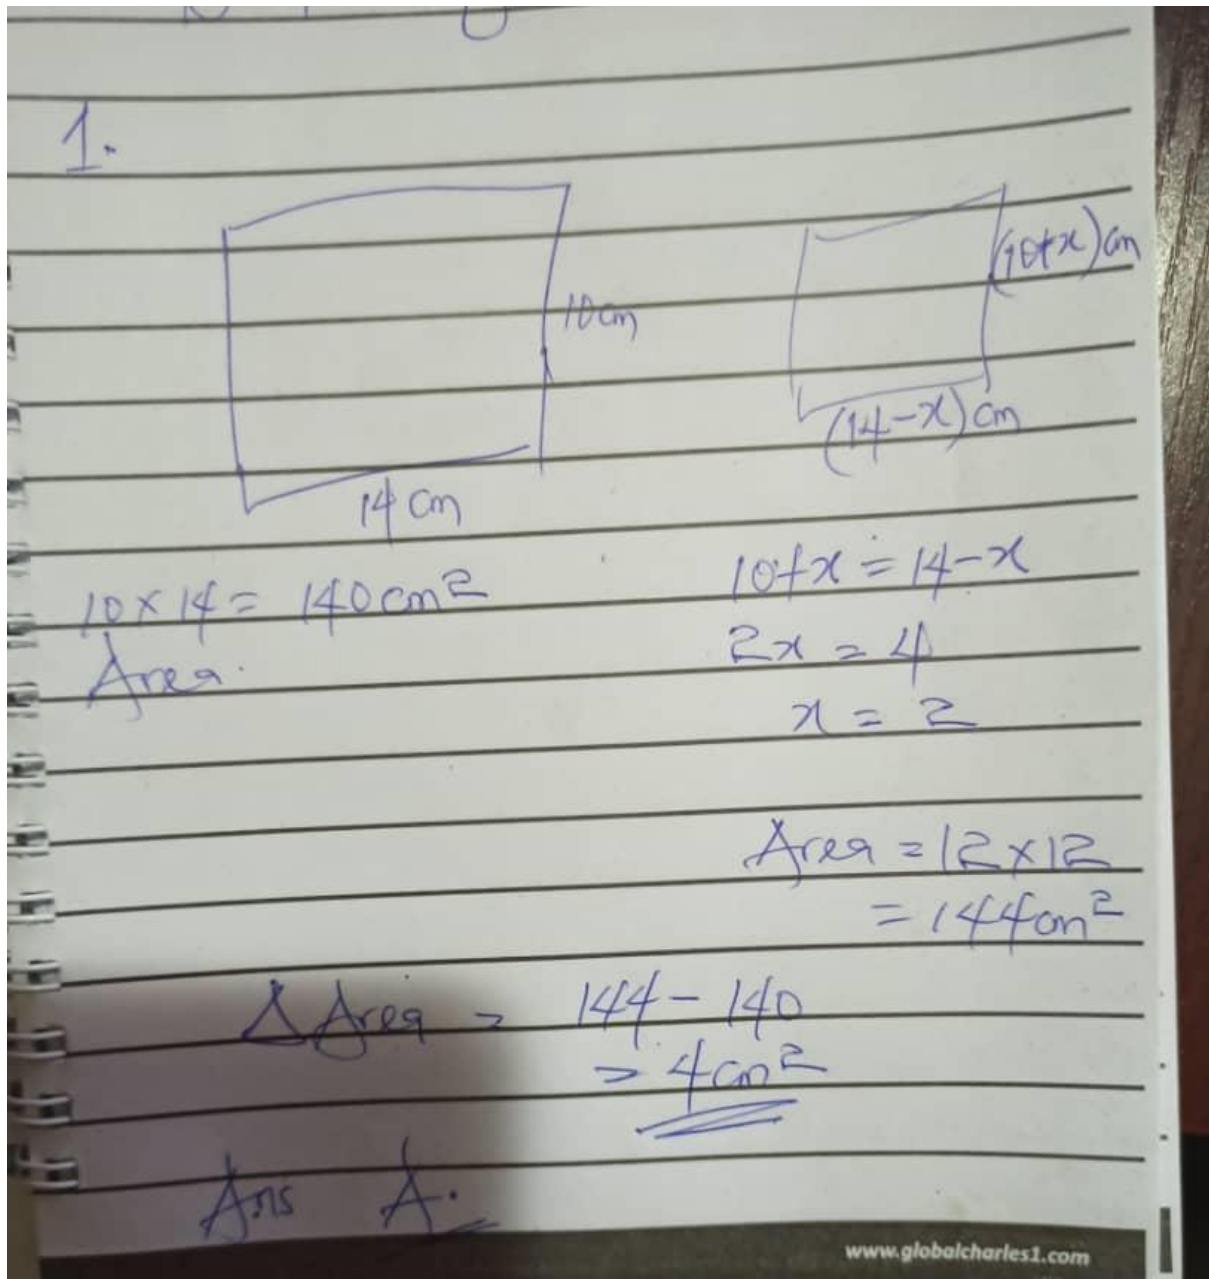 1.
10cm
14 cm
(10+x)cm
(14-x)cm
10 × 14 = 140cm²
Area.
10+x = 14-x
2x = 4
x = 2
Area = 12×12
= 144cm²
Δ Area = 144 - 140
= 4cm²
Ans A.
www.globalcharles1.com